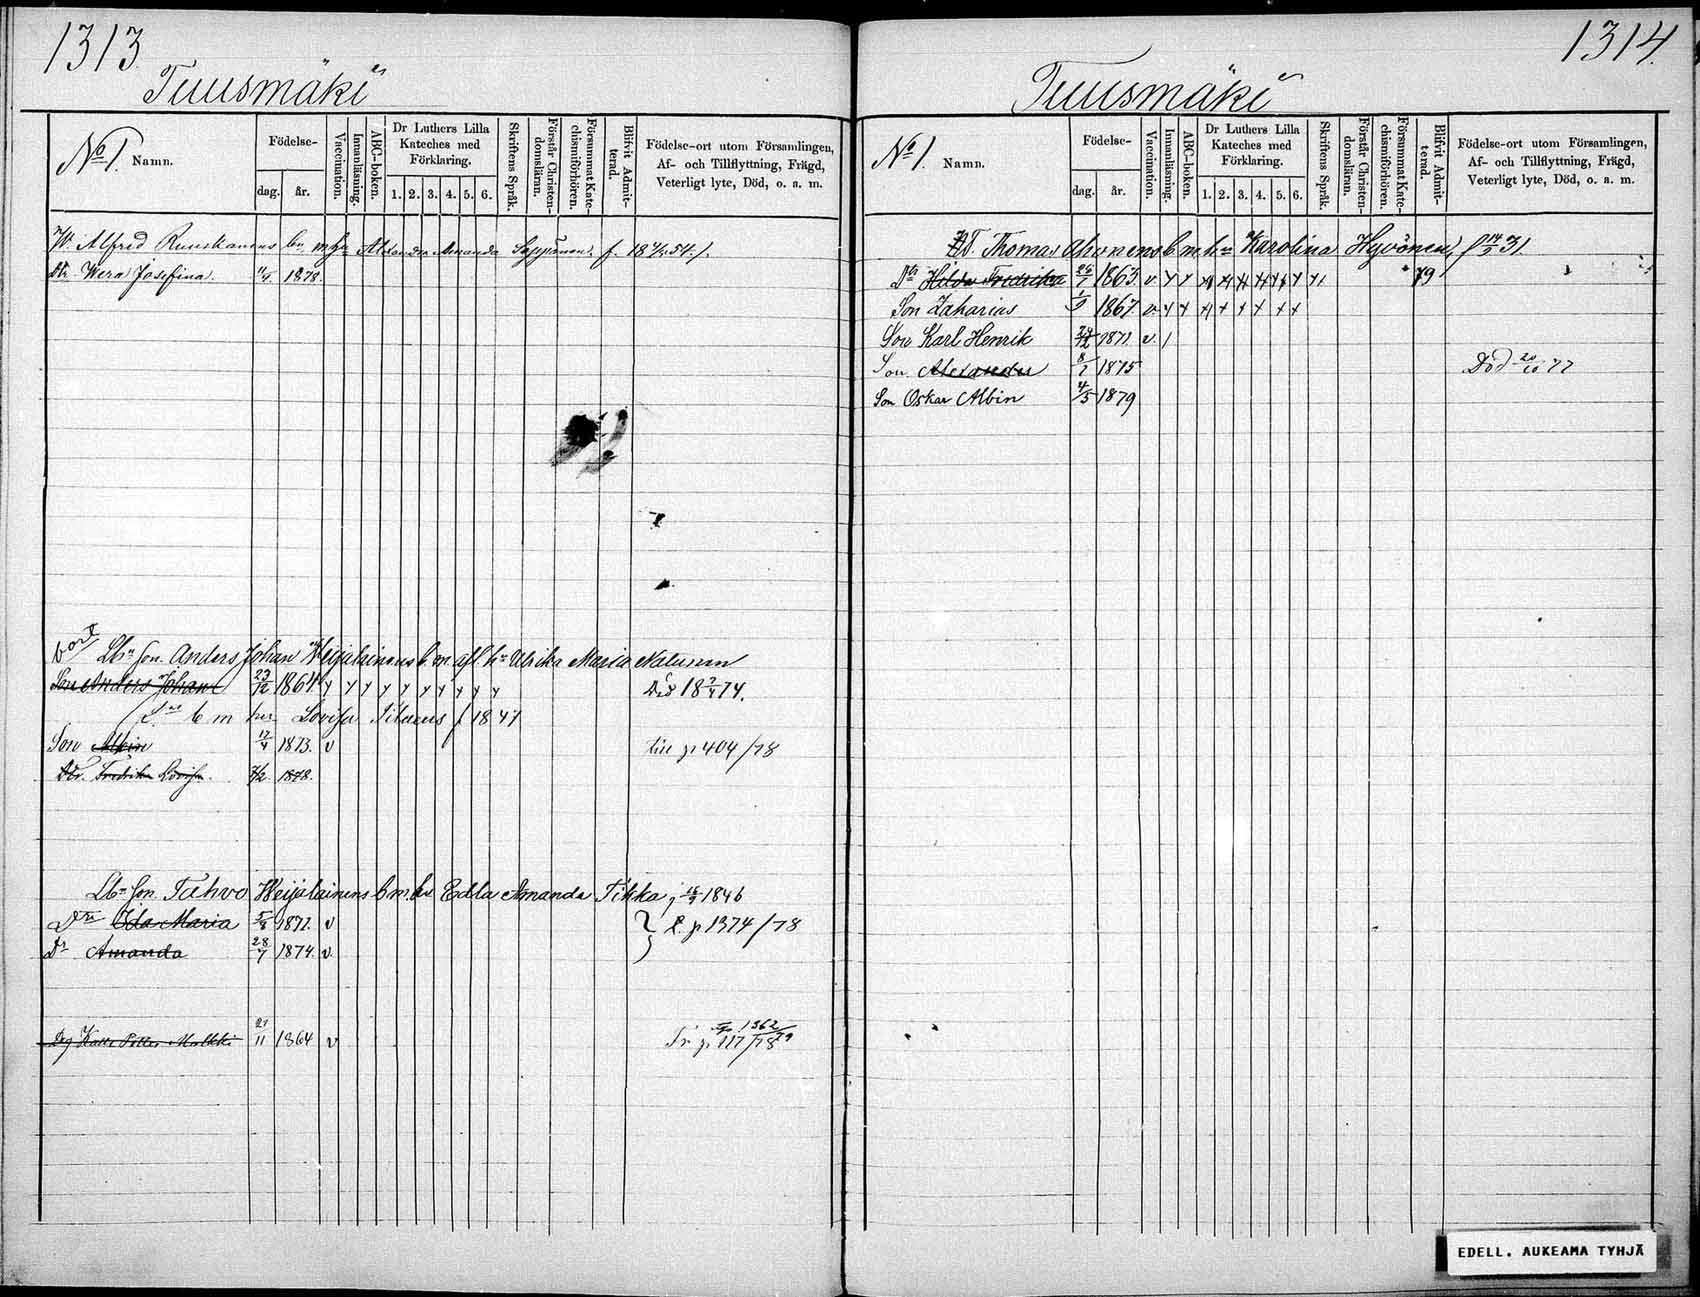 1313.
Tuusmäki
No 1. Namn.
Födelse-
dag. år.
Vaccination.
Innanläsning.
ABC-boken.
Dr Luthers Lilla Kateches med Förklaring.
1. 2. 3. 4. 5. 6.
Skriftens Språk.
Förstår Christendomsläran.
Försummat Katechismiförhören.
Blifvit Admitterad.
Födelse-ort utom Församlingen, Af- och Tillflyttning, Frägd, Veterligt lyte, Död, o. a. m.
Alfred Ruuskanens bn m hu Alexandra Amanda Seppänen f. 18 54.
Dtr. Wera Josefina. 11/4. 1878.
bort
Lbn Son. Anders Johan Weijalainens b. m. afl. hu Ulrika Maria Natunen
Son Anders Johan 23/12 1864 Död 18 7/4 74.
b m hu Lovisa f 1847
Son Albin 17/4 1873. v till p 404/78
Dtr. Fredrika Lovisa. 7/2. 1878.
Lbn Son. Tahvo Weijalainens b. m. hu Edla Amanda Tikka, 1846
Dtr Ida Maria 5/8 1872. v p 1374/78
Dr Amanda 28/7 1874. v.
Drg Kalle Petter Malkki 21/11 1864 v p. 1362/79
p 117/78
1314.
Tuusmäki
No 1. Namn.
Födelse-
dag. år.
Vaccination.
Innanläsning.
ABC-boken.
Dr Luthers Lilla Kateches med Förklaring.
1. 2. 3. 4. 5. 6.
Skriftens Språk.
Förstår Christendomsläran.
Försummat Katechismiförhören.
Blifvit Admitterad.
Födelse-ort utom Församlingen, Af- och Tillflyttning, Frägd, Veterligt lyte, Död, o. a. m.
Thomas Ahonens b. m. hu Karolina Hyvönen, f 14/5 31.
Dtr Hilda Fredrika 26/7 1863. v 79
Son Zakarias 1/9 1867. v
Son Karl Henrik 24/12 1871. v
Son Alexander 8/7 1875 Död 20/10 77
Son Oskar Albin 4/5 1879
EDELL. AUKEAMA TYHJÄ